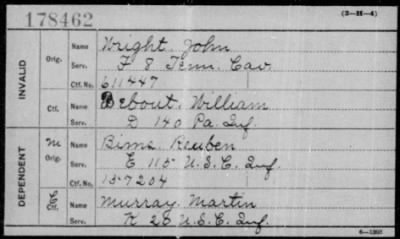 178462
(3-H-4)
INVALID
Orig. Name Wright, John
Serv. F 8 Tenn. Cav.
Ctf. No. 611447
Ctf. Name Debout, William
Serv. D 140 Pa. Inf.
DEPENDENT
M Orig. Name Bims, Reuben
Serv. E 115 U.S.C. Inf.
Ctf. No. 157204
Ctf. Name Murray, Martin
Serv. K 28 U.S.C. Inf.